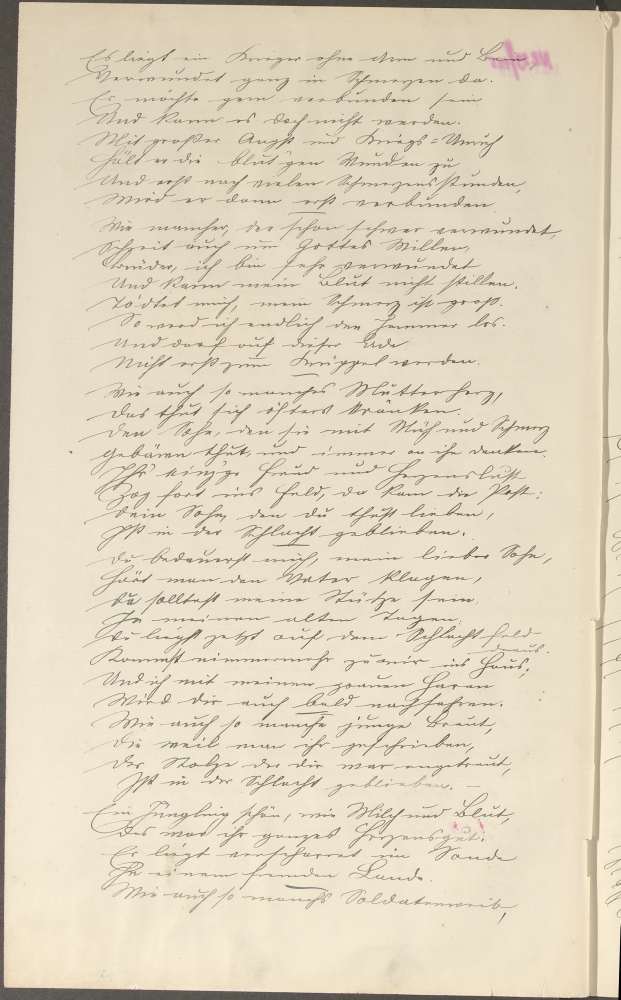 Es liegt ein Krieger ohne Arm und Bein
Verwundet ganz in Schmerzen da.
Er möchte gern verbunden sein
Und kann es doch nicht werden.
Mit großer Angst und Kriegs=Unruh
Hält er die blut'gen Wunden zu
Und erst nach vielen Schmerzensstunden,
Wird er dann erst verbunden
Wie mancher, der schon schwer verwundet,
Schreit auch um Gottes Willen,
Brüder, ich bin sehr verwundet
Und kann mein Blut nicht stillen.
Tödtet mich, mein Schmerz ist groß.
So werd ich endlich den Jammer los.
Und darf auf dieser Erde
Nicht erst zum Krüppel werden.
Wie auch so manches Mutterherz,
Das thut sich öfters kränken.
Den Sohn, den sie mit Müh und Schmerz
Gebären thut, und immer an ihn denken.
Ihr einz'ge Freud und Herzenslust
Zog fort ins Feld, da kam die Post:
Dein Sohn, den du thust lieben,
Ist in der Schlacht geblieben.
Du bedauerst mich, mein lieber Sohn,
Hört man den Vater klagen,
Du solltest meine Stütze sein
In meinen alten Tagen.
Du liegst jetzt auf dem Schlachtfeld
draus.
Kommst nimmermehr zu mir ins Haus;
Und ich mit meinen grauen Haren
Wird dir auch bald nachfahren.
Wie auch so manche junge Braut,
Die weil man ihr geschrieben,
Der Stolze der dir war angetraut,
Ist in der Schlacht geblieben. –
Ein Jüngling schön, wie Milch und Blut,
Das war ihr ganzes Herzensgut.
Er liegt verscharret im Sande
In einem fremden Lande.
Wie auch so manch's Soldatenweib,